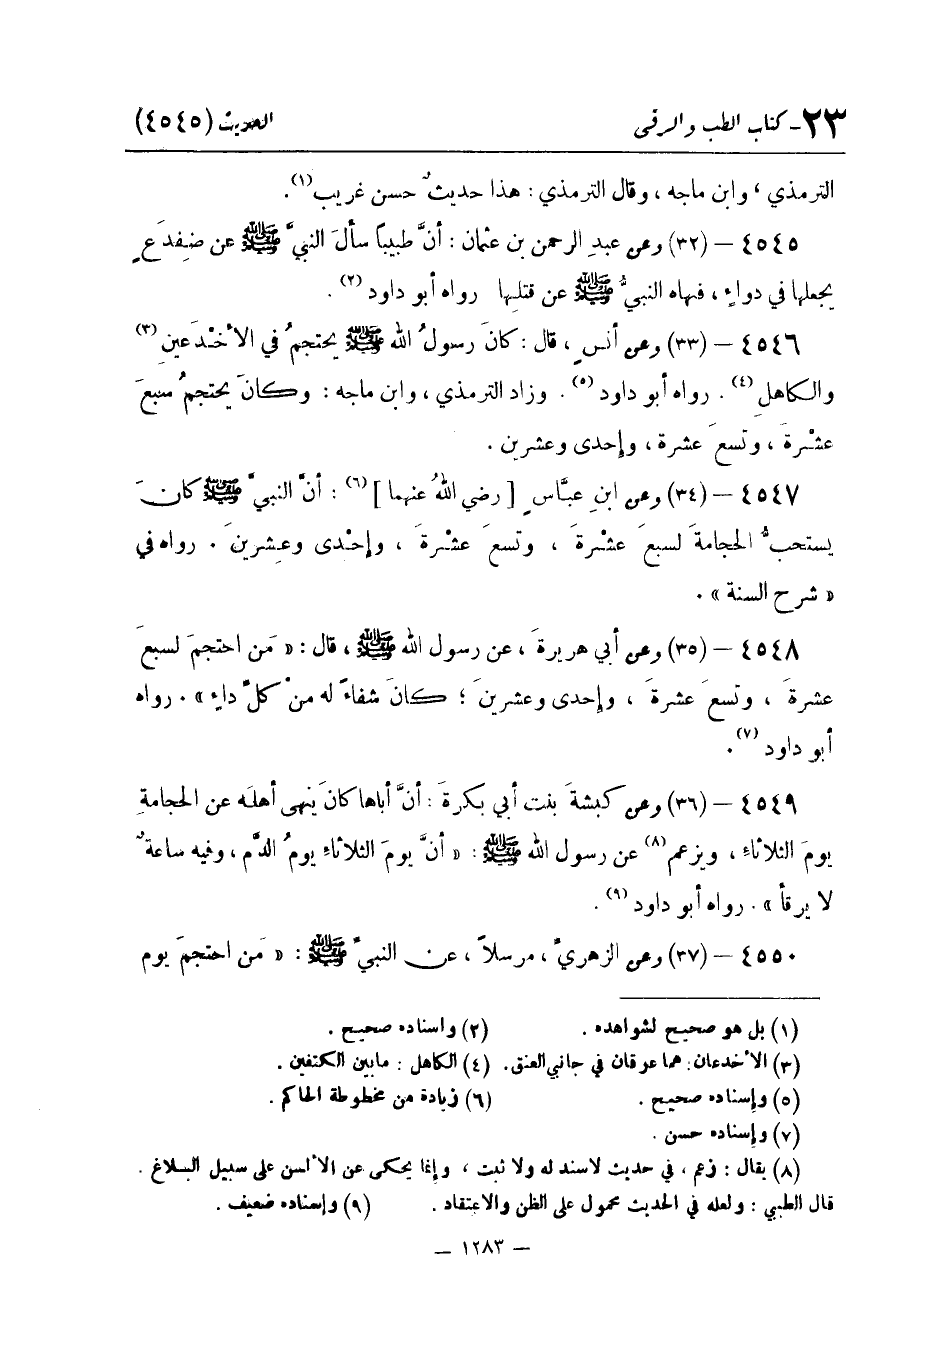 ٢٣ـ كتاب الطب والرقى الحديث (٤٥٤٥)
الترمذي ، وابن ماجه ، وقال الترمذي : هذا حديثٌ حسن غريب(١).
٤٥٤٥ – (٣٢) وعن عبدِ الرحمن بن عثمان : أنَّ طبيباً سألَ النبيَّ ﷺ عن ضِفدَعٍ
يجعلها في دواءٍ ، فنهاه النبيُّ ﷺ عن قتلِها رواه أبو داود(٢) .
٤٥٤٦ – (٣٣) وعن أنسٍ ، قال : كانَ رسولُ الله ﷺ يحتجمُ في الأخْدَعينِ(٣)
والكاهلِ(٤) . رواه أبو داود(٥) . وزاد الترمذي ، وابن ماجه : وكانَ يحتجمُ سبعَ
عشْرةَ ، وتسعَ عشرة ، وإحدى وعشرين .
٤٥٤٧ – (٣٤) وعن ابنِ عبَّاسٍ [ رضي اللهُ عنهما ](٦) : أنَّ النبيَّ ﷺ كانَ
يستحبُّ الحجامةَ لسبعَ عشْرةَ ، وتسعَ عشْرةَ ، وإحْدى وعِشرينَ . رواه في
« شرح السنة » .
٤٥٤٨ – (٣٥) وعن أبي هريرةَ ، عن رسول الله ﷺ ، قال : « مَن احتجمَ لسبعَ
عشرةَ ، وتسعَ عشرةَ ، وإحدى وعشرينَ ؛ كانَ شفاءً له منْ كلِّ داءٍ » . رواه
أبو داود(٧).
٤٥٤٩ – (٣٦) وعن كبشةَ بنت أبي بكرةَ : أنَّ أباها كانَ ينهى أهلَه عن الحجامةِ
يومَ الثلاثاءِ ، ويزعم(٨) عن رسول الله ﷺ : « أنَّ يومَ الثلاثاءِ يومُ الدَّم ، وفيه ساعةٌ
لا يرقأ » . رواه أبو داود(٩) .
٤٥٥٠ – (٣٧) وعن الزهريِّ ، مرسلاً ، عن النبيِّ ﷺ : « مَن احتجمَ يوم
(١) بل هو صحيح لشواهده . (٢) واسناده صحيح .
(٣) الأخدعان: هما عرقان في جانبي العنق. (٤) الكاهل : مابين الكتفين .
(٥) وإسناده صحيح . (٦) زيادة من مخطوطة الحاكم .
(٧) وإسناده حسن .
(٨) يقال : زعم ، في حديث لاسند له ولا ثبت ، وإنما يحكى عن الألسن على سبيل البلاغ .
قال الطيبي : ولعله في الحديث محمول على الظن والاعتقاد . (٩) وإسناده ضعيف .
– ١٢٨٣ –